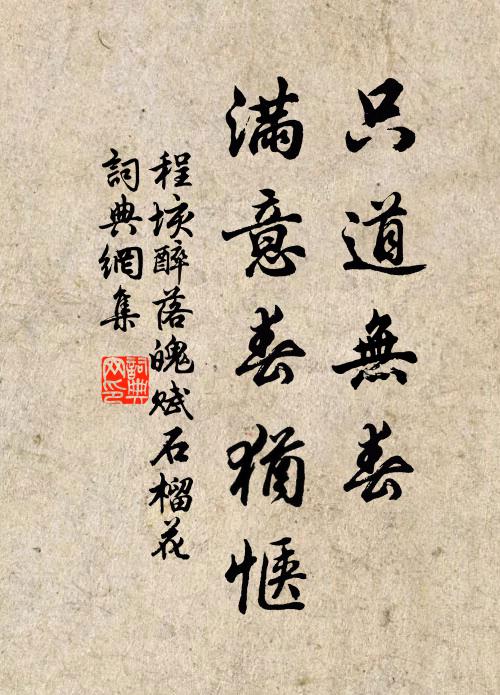 只道無春
滿意春猶愜
程垓醉落魄賦石榴花
詞典網集
詞典網印